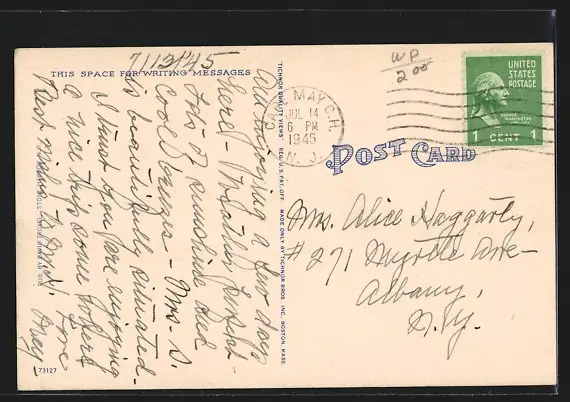 7/12/45
THIS SPACE FOR WRITING MESSAGES
Am enjoying a few days
here - Weather perfect -
lots of sunshine and
cool breezes - Mrs. S.
is beautifully situated.
I trust you are enjoying
a nice trip some where
Best wishes to Love
TICHNOR QUALITY VIEWS REG. U.S. PAT. OFF. MADE ONLY BY TICHNOR BROS., INC., BOSTON, MASS.
73127
CAPE MAY C.H.
JUL 14
6 PM
1945
N. J.
WP
2 00
UNITED
STATES
POSTAGE
GEORGE
WASHINGTON
1 CENT 1
POST CARD
Mrs. Alice Haggarty,
#271 Myrtle Ave-
Albany,
N.Y.